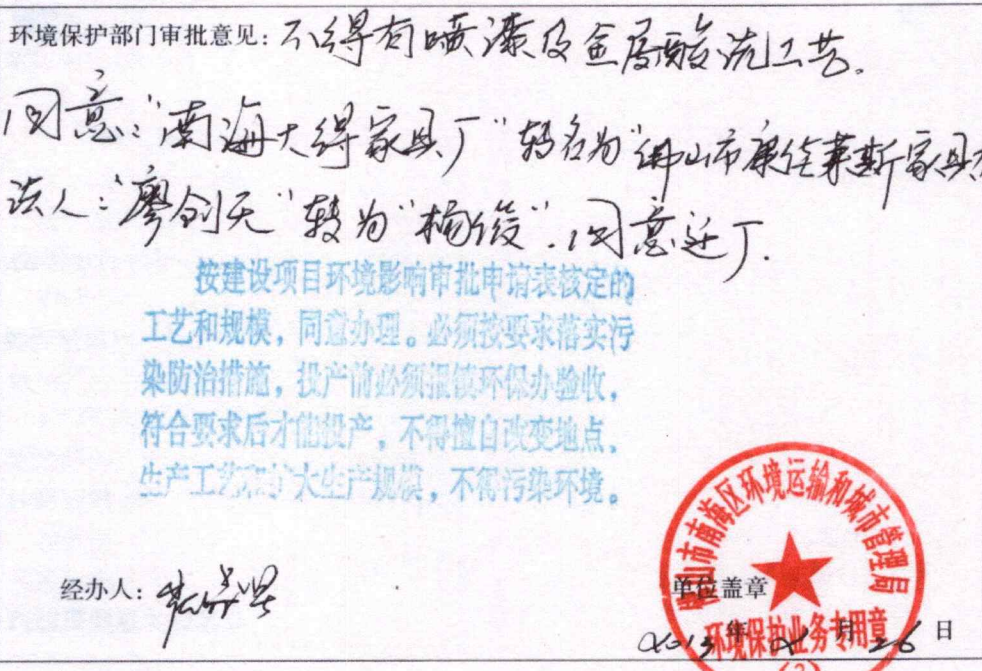 环境保护部门审批意见：不得有喷漆及金属酸洗工艺.
同意："南海大得家具厂"转名为"佛山市康佳莱斯家具
法人："廖剑天"转为"杨俊".同意迁厂.
按建设项目环境影响审批申请表核定的
工艺和规模，同意办理。必须按要求落实污
染防治措施，投产前必须报镇环保办验收，
符合要求后才能投产，不得擅自改变地点、
生产工艺和扩大生产规模，不得污染环境。
佛山市南海区环境运输和城市管理局
经办人：
单位盖章
2013年 月26日
环境保护业务专用章